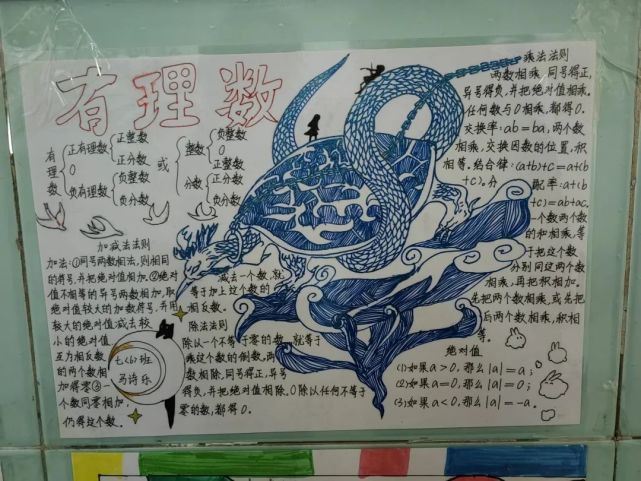 有理数
有理数
正有理数
正整数
正分数
0
负有理数
负整数
负分数
或
整数
负整数
0
正整数
分数
正分数
负分数
加减法法则
加法:①同号两数相加,则相同
的符号,并把绝对值相加.②绝对
值不相等的异号两数相加,取
绝对值较大的加数符号,并用
较大的绝对值减去较
小的绝对值
互为相反数
的两个数相
加得零③一
个数同零相加,
仍得这个数.
七(6)班
马诗乐
减去一个数,就
等于加上这个数的
相反数.
除法法则
除以一个不等于零的数,就等于
乘这个数的倒数,两
数相除,同号得正,异号
得负,并把绝对值相除.0除以任何不等于
零的数,都得0.
乘法法则
两数相乘,同号得正,
异号得负,并把绝对值相乘.
任何数与0相乘,都得0.
交换率:ab=ba,两个数
相乘,交换因数的位置,积
相等.结合律:(a+b)+c=a+(b
+c).分配率:a+(b
+c)=ab+ac,
一个数两个数
的和相乘,等
于把这个数
分别同这两个数
相乘,再把积相加.
先把两个数相乘,或先把
后两个数相乘,积相
等.
绝对值
(1)如果a>0,那么|a|=a;
(2)如果a=0,那么|a|=0;
(3)如果a<0,那么|a|=-a.